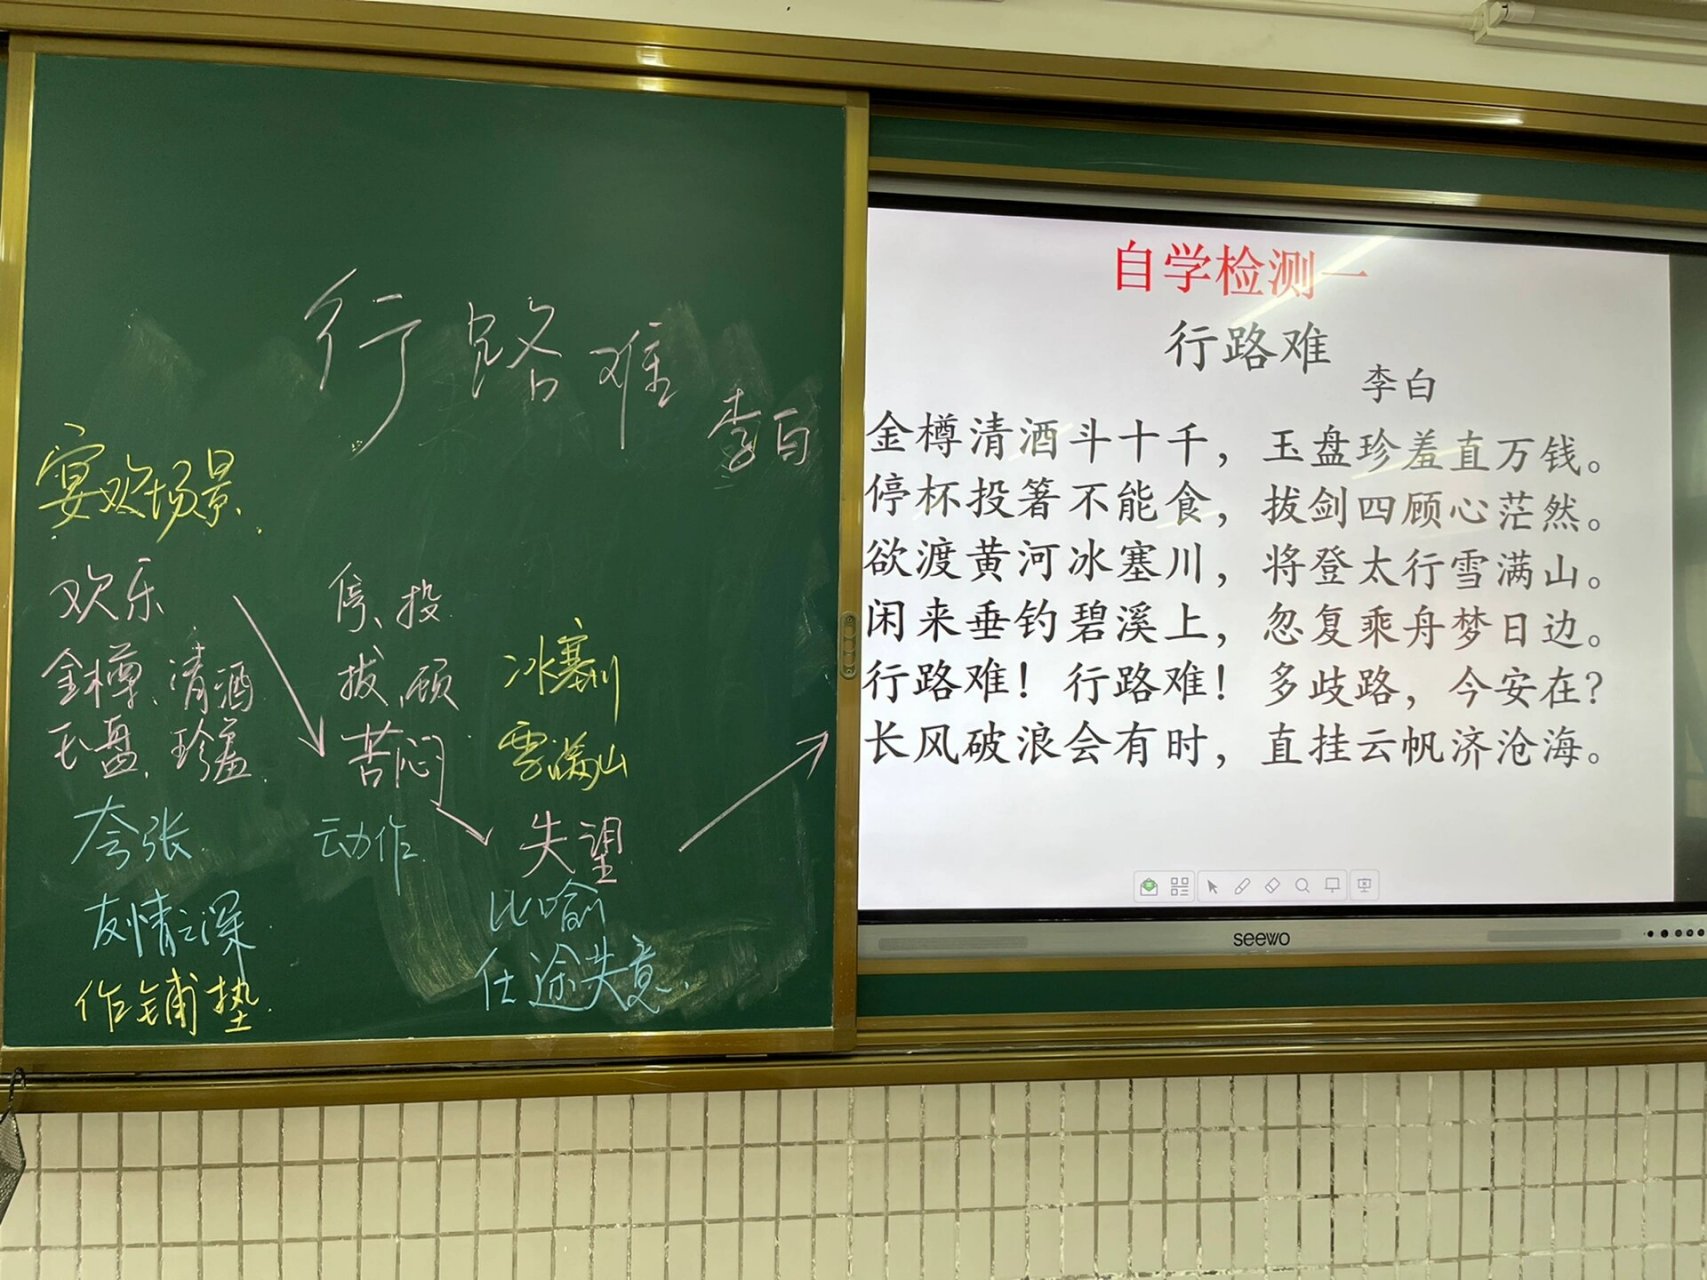 行路难
李白
宴欢场景
欢乐
金樽、清酒
玉盘、珍羞
夸张
友情之深
作铺垫
停、投
拔、顾
苦闷
动作
冰塞川
雪满山
失望
比喻
仕途失意
自学检测一
行路难
李白
金樽清酒斗十千，玉盘珍羞直万钱。
停杯投箸不能食，拔剑四顾心茫然。
欲渡黄河冰塞川，将登太行雪满山。
闲来垂钓碧溪上，忽复乘舟梦日边。
行路难！行路难！多歧路，今安在？
长风破浪会有时，直挂云帆济沧海。
seewo